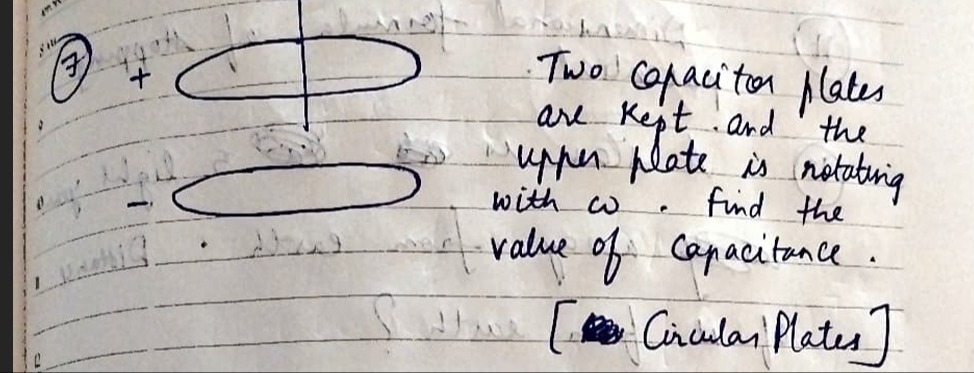 7
+
Two capacitor plates
are kept . and the
upper plate is rotating
with ω . find the
-
value of capacitance .
[ Circular Plates ]